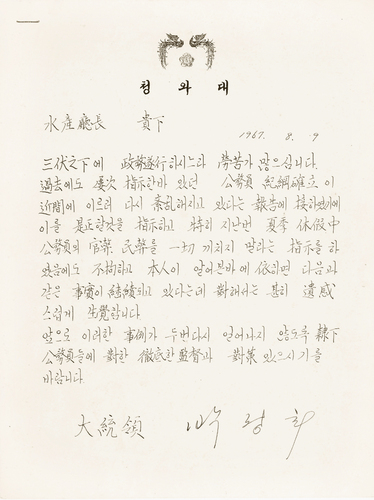 청와대
水産廳長 貴下
1967. 8. 9
三伏之下에 政務遂行하시느라 勞苦가 많으십니다.
過去에도 屢次 指示한바 있던 公務員 紀綱確立이
近間에 이르러 다시 紊亂해지고 있다는 報告에 接하였기에
이를 是正할것을 指示하고 特히 지난번 夏季 休假中
公務員의 官弊 民弊를 一切 끼치지 말라는 指示를 하
였음에도 不拘하고 本人이 알어본바에 依하면 다음과
같은 事實이 있다는데 對해서는 甚히 遺感
스럽게 生覺합니다.
앞으로 이러한 事例가 두번다시 일어나지 않도록 隷下
公務員들에 對한 徹底한 監督과 對策 있으시기를
바랍니다.
大統領 박정희